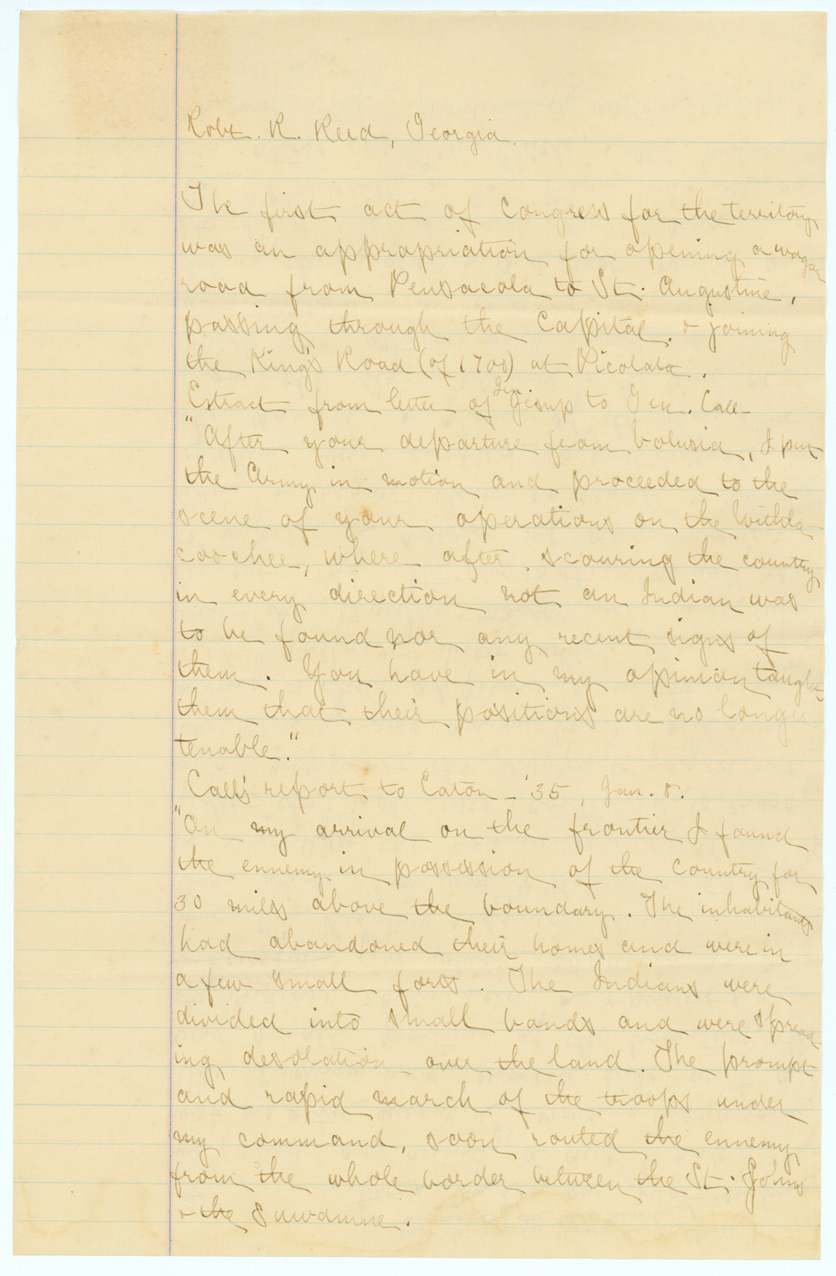 Robt. R. Reed, Georgia
The first act of Congress for the territory
was an appropriation for opening a wagon
road from Pensacola to St. Augustine,
passing through the Capital, & joining
the King's Road (of 1700) at Picolata.
Extract from letter of Gen. Jesup to Gen. Call
"After your departure from Volusia, I put
the Army in motion and proceeded to the
scene of your operations on the Withla-
coochee, where after scouring the country
in every direction not an Indian was
to be found nor any recent signs of
them. You have in my opinion taught
them that their positions are no longer
tenable."
Call's report to Eaton - '35, Jan. 8.
"On my arrival on the frontier I found
the ennemy in possession of the country for
30 miles above the boundary. The inhabitants
had abandoned their homes and were in
a few small forts. The Indians were
divided into small bands and were spread-
ing desolation over the land. The prompt
and rapid march of the troops under
my command, soon routed the ennemy
from the whole border between the St. Johns
& the Suwannee.